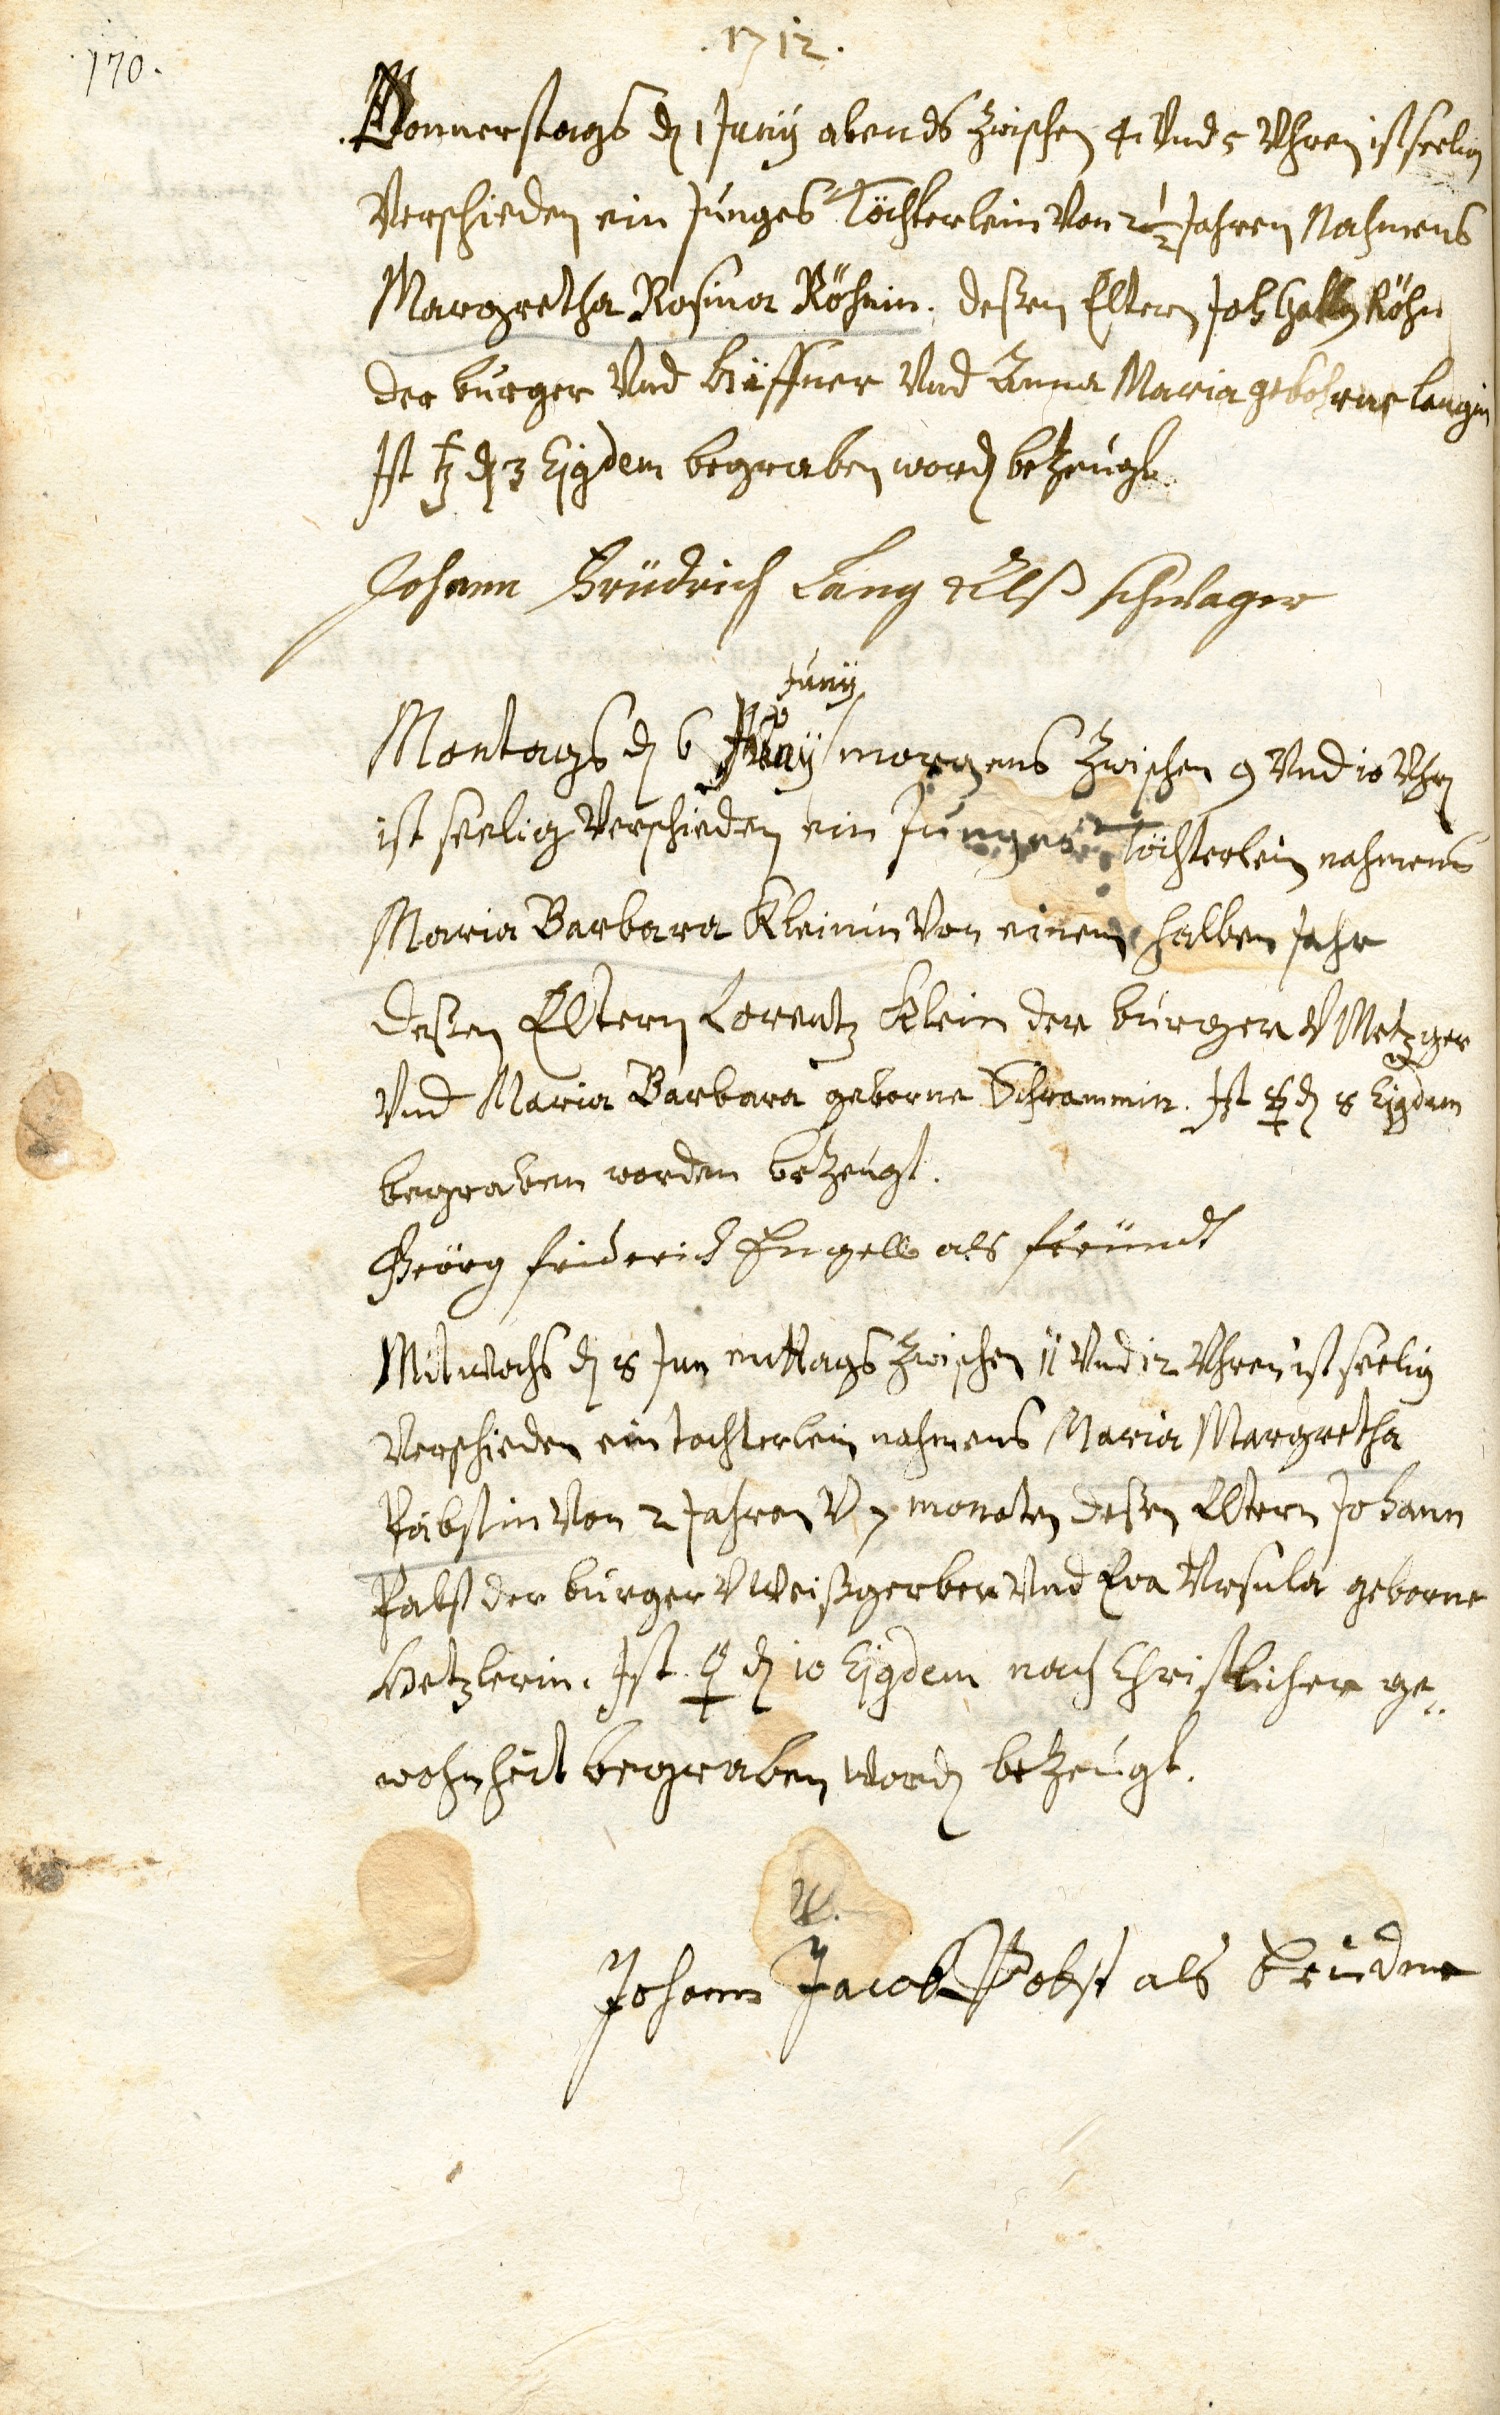 170.
.1712.
Donnerstags dn 1 Junÿ abends zwischen 4 Vnd 5 Vhren ist seelig
Verschieden ein Junges Töchterlein Von 2 1/2 Jahren Nahmens
Margretha Rosina Röhrin. deßen Eltern Joh Röhr
der burger Vnd Vnd Anna Maria gebohrne Langin
Ist ♄ dn 3 Ejgdem begraben word bezeugt
Johann Friüdrich Lang Alß schwager
Junÿ
Montags dn 6 morgens zwischen 9 Vnd 10 Vhrn
ist seelig Verschieden ein Junges Töchterlein nahmens
Maria Barbara Kleinin Von einem halben Jahr
deßen Eltern Lorentz Klein der burger V Metzger
Vnd Maria Barbara geborne Schrammin. Ist ☿ dn 8 Ejgdem
begraben worden bezeugt.
Geörg friderich Engell als freündt
Mitwochs dn 8 Jun mittags zwischen 11 Vnd 12 Vhren ist seelig
Verschieden ein tochterlein nahmens Maria Margretha
Pabstin Von 2 Jahren V 7 monaten deßen Eltern Johann
Pabst der burger V Weißgerber Vnd Eva Vrsula geborne
Hetzlerin. Ist ♀ dn 10 Ejgdem nach Christlicher ge„
wohnheit begraben word bezeugt.
Johann Jacob Pobst als